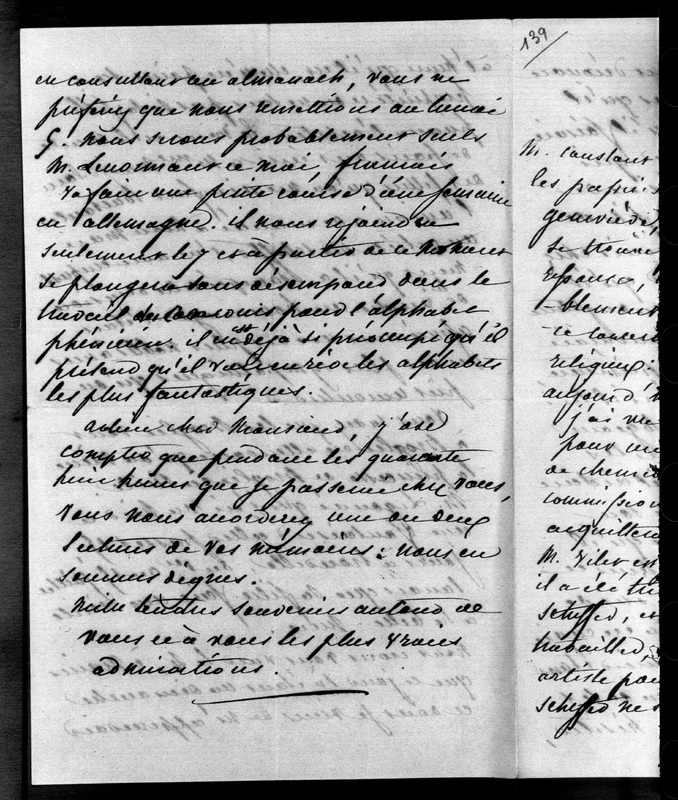 139
en consultant un almanach, vous ne
préfériez que nous remettions au lundi
9. nous serons probablement seuls
M. Lenormant ce moi, françois
va faire une petite course d'une semaine
en allemagne. il nous rejoindra
seulement le 7 et a partir de ce moment
se plongera sans désemparer dans le
travail du concours pour l'alphabet
phénicien. il en est déjà si préoccupé qu'il
prétend qu'il va en rêver les alphabets
les plus fantastiques.
adieu cher Monsieur, j'ose
compter que pendant les quarante
huit heures que je passerai chez vous,
vous nous accorderez une ou deux
lectures de vos mémoires : nous en
sommes dignes.
Mille tendres souvenirs autour de
vous et à vous les plus vraies
admirations.
M. Constant
les papie
geneviève,
se trouve
blement
ce
religieux :
aujourd'
j'ai vu
pour un
de chemi
commission
acquitter
M.
il a été
scheffer, e
travailler,
artiste po
scheffer ne s